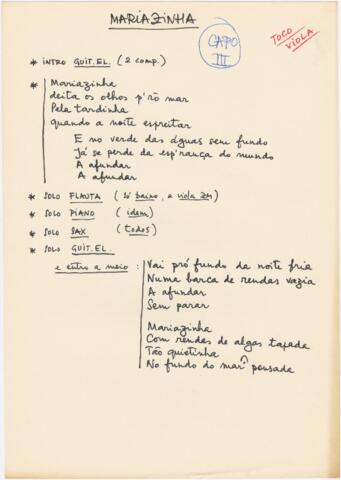 MARIAZINHA
CAPO
III
TOCO
VIOLA
* INTRO GUIT. EL. (2 comp.)
* Mariazinha
deita os olhos p'rò mar
Pela tardinha
quando a noite espreitar
E no verde das águas sem fundo
Já se perde da esp'rança do mundo
A afundar
A afundar
* SOLO FLAUTA (só baixo, e viola
* SOLO PIANO (idem)
* SOLO SAX (todos)
* SOLO GUIT. EL.
e entro a meio: Vai pró fundo da noite fria
Numa barca de rendas vazia
A afundar
Sem parar
Mariazinha
Com rendas de algas tapada
Tão quietinha
No fundo do mar ^ pousada